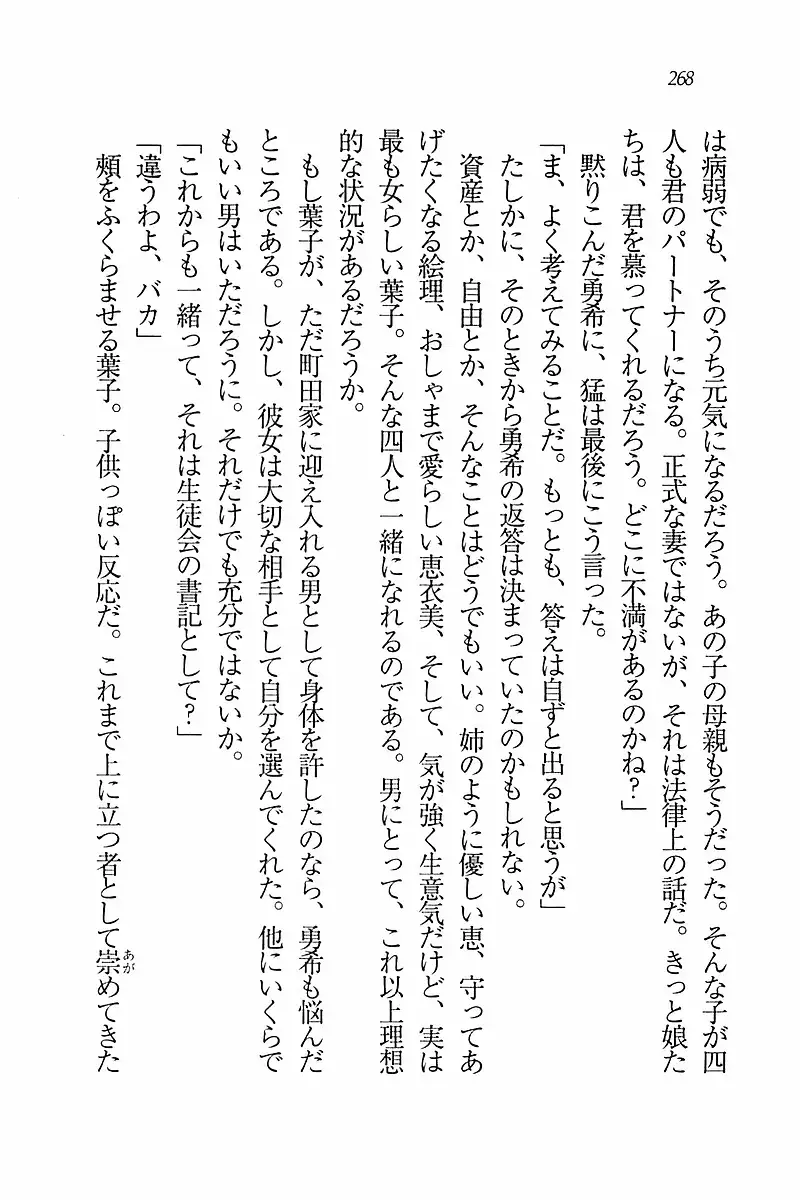 268
は病弱でも、そのうち元気になるだろう。あの子の母親もそうだった。そんな子が四
人も君のパートナーになる。正式な妻ではないが、それは法律上の話だ。きっと娘た
ちは、君を慕ってくれるだろう。どこに不満があるのかね？」
黙りこんだ勇希に、猛は最後にこう言った。
「ま、よく考えてみることだ。もっとも、答えは自ずと出ると思うが」
たしかに、そのときから勇希の返答は決まっていたのかもしれない。
資産とか、自由とか、そんなことはどうでもいい。姉のように優しい恵、守ってあ
げたくなる絵理、おしゃまで愛らしい恵衣美、そして、気が強く生意気だけど、実は
最も女らしい葉子。そんな四人と一緒になれるのである。男にとって、これ以上理想
的な状況があるだろうか。
もし葉子が、ただ町田家に迎え入れる男として身体を許したのなら、勇希も悩んだ
ところである。しかし、彼女は大切な相手として自分を選んでくれた。他にいくらで
もいい男はいただろうに。それだけでも充分ではないか。
「これからも一緒って、それは生徒会の書記として？」
「違うわよ、バカ」
頰をふくらませる葉子。子供っぽい反応だ。これまで上に立つ者として崇めてきた
あが